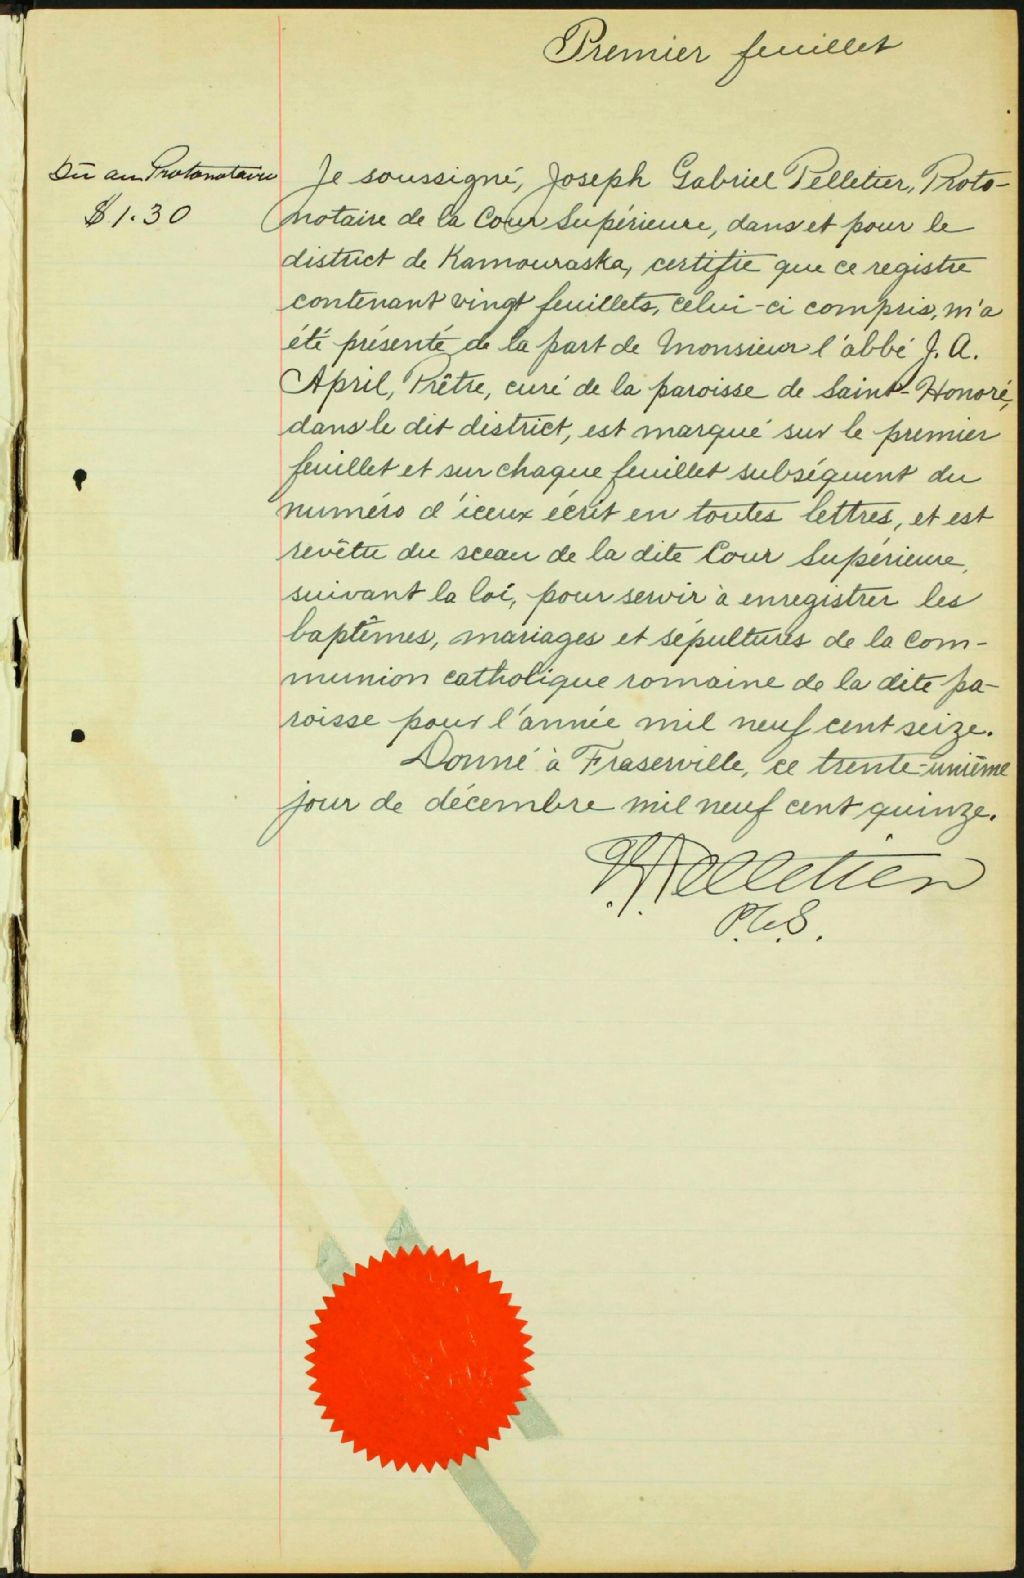 Premier feuillet
Dû au Protonotaire
$1.30
Je soussigné, Joseph Gabriel Pelletier, Proto-
notaire de la Cour Supérieure, dans et pour le
district de Kamouraska, certifie que ce registre
contenant vingt feuillets, celui-ci compris, m'a
été présenté de la part de Monsieur l'abbé J. A.
April, Prêtre, curé de la paroisse de Saint-Honoré,
dans le dit district, est marqué sur le premier
feuillet et sur chaque feuillet subséquent du
numéro d'iceux écrit en toutes lettres, et est
revêtu du sceau de la dite Cour Supérieure,
suivant la loi, pour servir à enregistrer les
baptêmes, mariages et sépultures de la com-
munion catholique romaine de la dite pa-
roisse pour l'année mil neuf cent seize.
Donné à Fraserville, ce trente-unième
jour de décembre mil neuf cent quinze.
Pelletier
P.C.S.